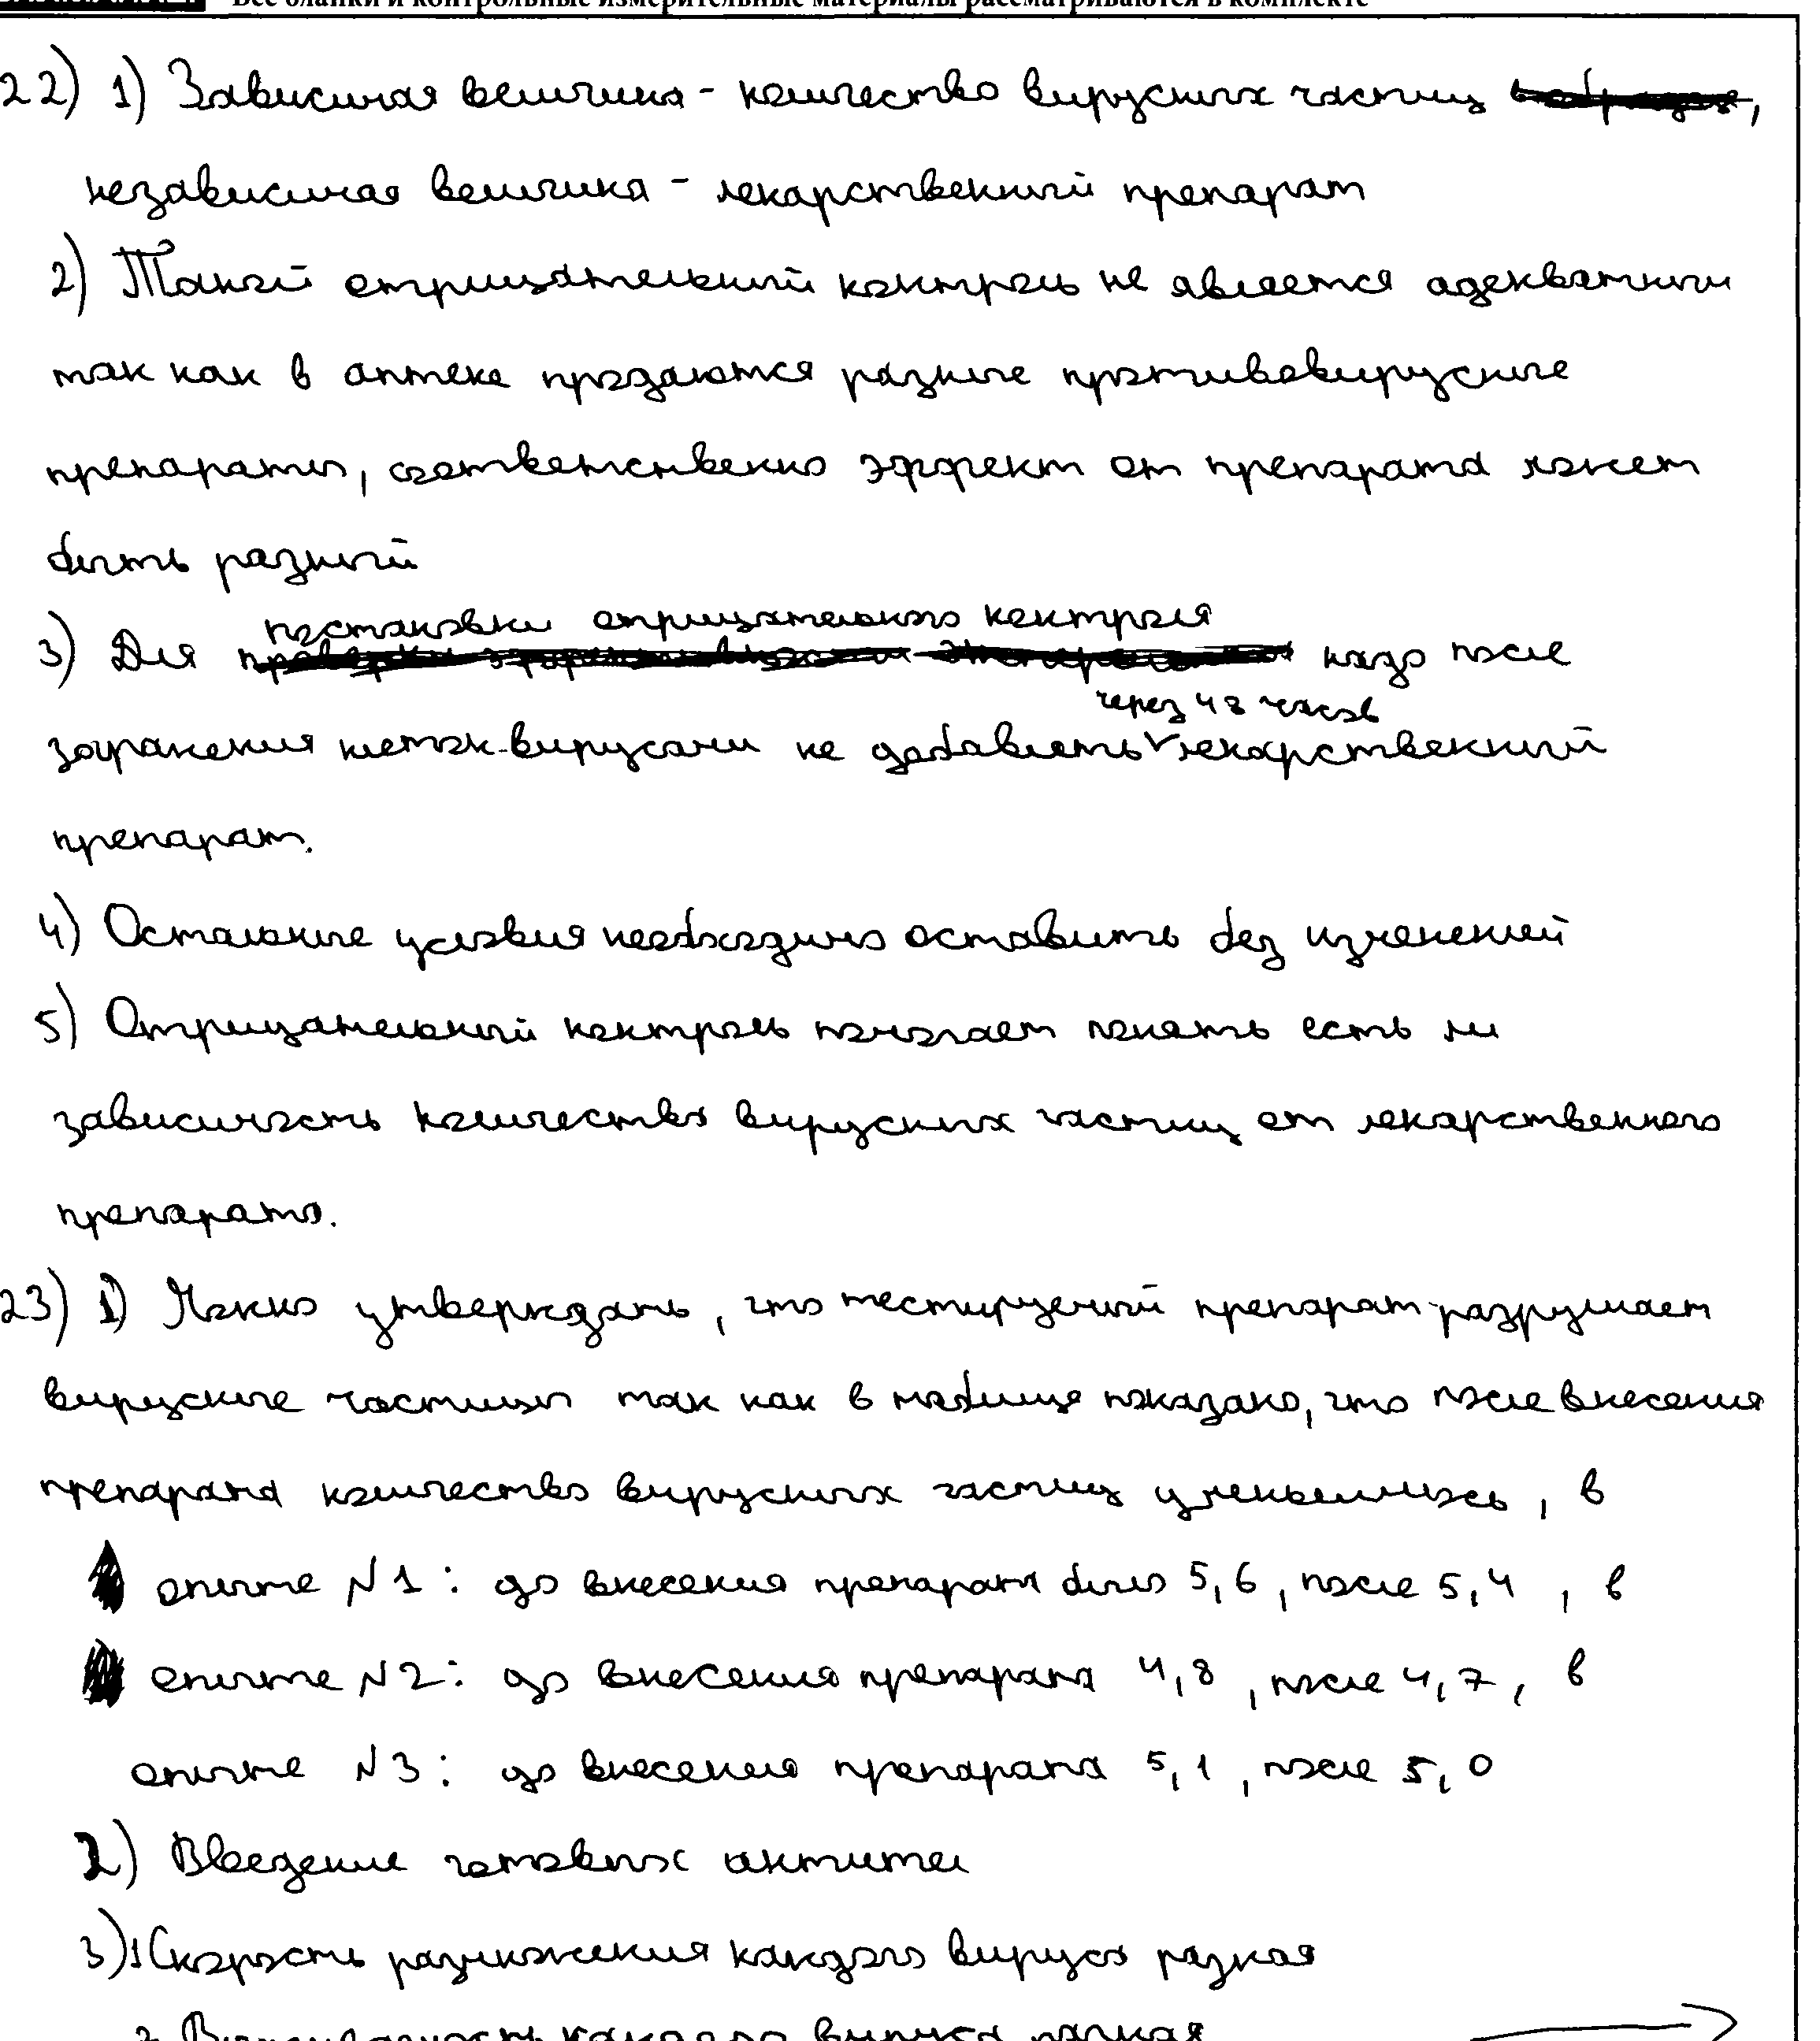 Все бланки и контрольные измерительные материалы рассматриваются в комплекте
22) 1) Зависимая величина - количество вирусных частиц,
независимая величина - лекарственный препарат
2) Такой отрицательный контроль не является адекватным
так как в аптеке продаются разные противовирусные
препараты, соответственно эффект от препарата может
быть разный
3) Для постановки отрицательного контроля надо после
заражения клеток вирусами не добавлять через 48 часов лекарственный
препарат.
4) Остальные условия необходимо оставить без изменений
5) Отрицательный контроль помогает понять есть ли
зависимость количества вирусных частиц от лекарственного
препарата.
23) 1) Можно утверждать, что тестируемый препарат разрушает
вирусные частицы так как в таблице показано, что после внесения
препарата количество вирусных частиц уменьшилось, в
опыте N1: до внесения препарата было 5,6, после 5,4, в
опыте N2: до внесения препарата 4,8, после 4,7, в
опыте N3: до внесения препарата 5,1, после 5,0
2) Введение готовых антител
3) 1 Скорость размножения каждого вируса разная
каждого вируса разная